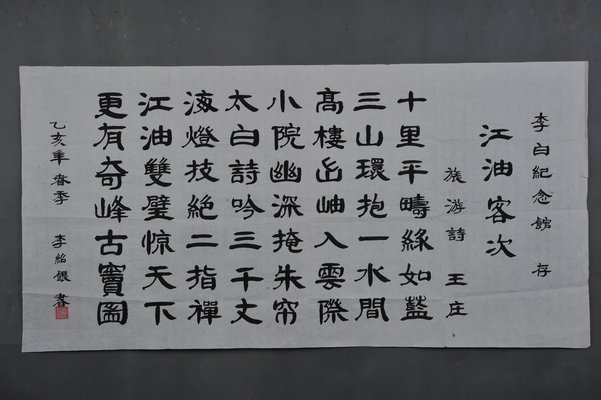 李白纪念館 存
江油客次
旅游詩 王庄
十里平疇綠如藍
三山環抱一水間
高樓出岫入雲際
小院幽深掩朱帘
太白詩吟三千丈
海燈技絕二指禪
江油雙璧惊天下
更有奇峰古竇圌
乙亥年春季 李紿銀書